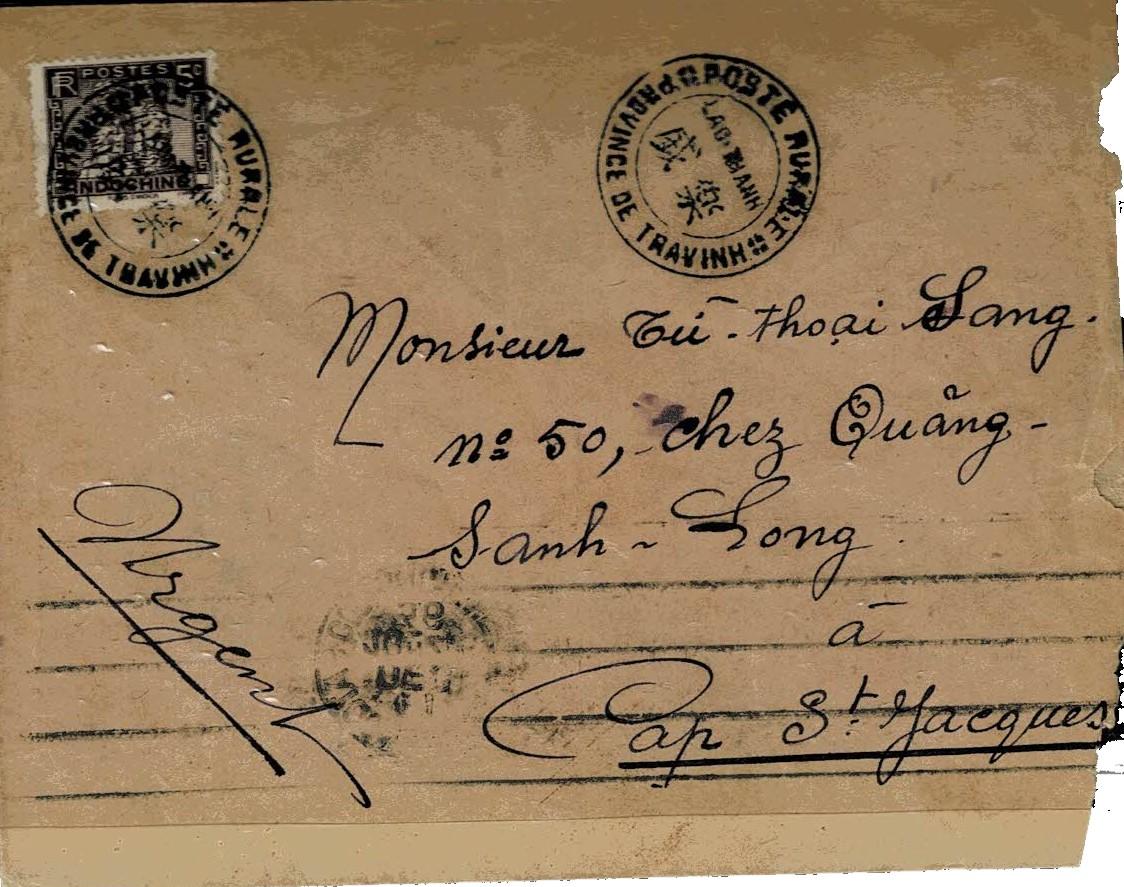 RF POSTES 5c
INDOCHINE
POSTE RURALE
PROVINCE DE TRAVINH
POSTE RURALE
PROVINCE DE TRAVINH
盛樂
Monsieur Từ-thoại Sang.
nº 50, chez Quảng-
Sanh-Long.
à
Cap St. Jacques
Urgent